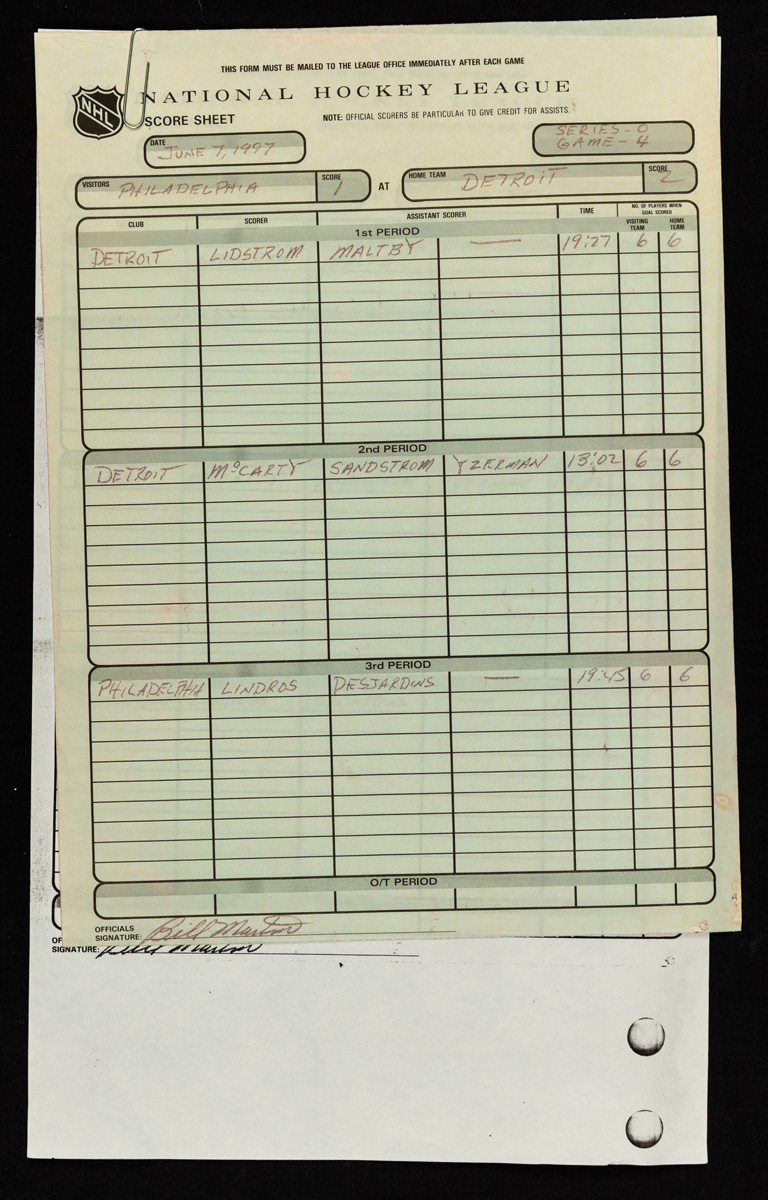 THIS FORM MUST BE MAILED TO THE LEAGUE OFFICE IMMEDIATELY AFTER EACH GAME
NHL
NATIONAL HOCKEY LEAGUE
SCORE SHEET
NOTE: OFFICIAL SCORERS BE PARTICULAR TO GIVE CREDIT FOR ASSISTS.
DATE JUNE 7, 1997
SERIES - O
GAME - 4
VISITORS PHILADELPHIA SCORE 1 AT HOME TEAM DETROIT SCORE 2
CLUB SCORER ASSISTANT SCORER TIME NO. OF PLAYERS WHEN GOAL SCORED
VISITING TEAM HOME TEAM
1st PERIOD
DETROIT LIDSTROM MALTBY — 19:27 6 6
2nd PERIOD
DETROIT McCARTY SANDSTROM YZERMAN 13:02 6 6
3rd PERIOD
PHILADELPHIA LINDROS DESJARDINS — 19:45 6 6
O/T PERIOD
OFFICIALS
SIGNATURE: Bill Martin
OF
SIGNATURE: Bill Martin